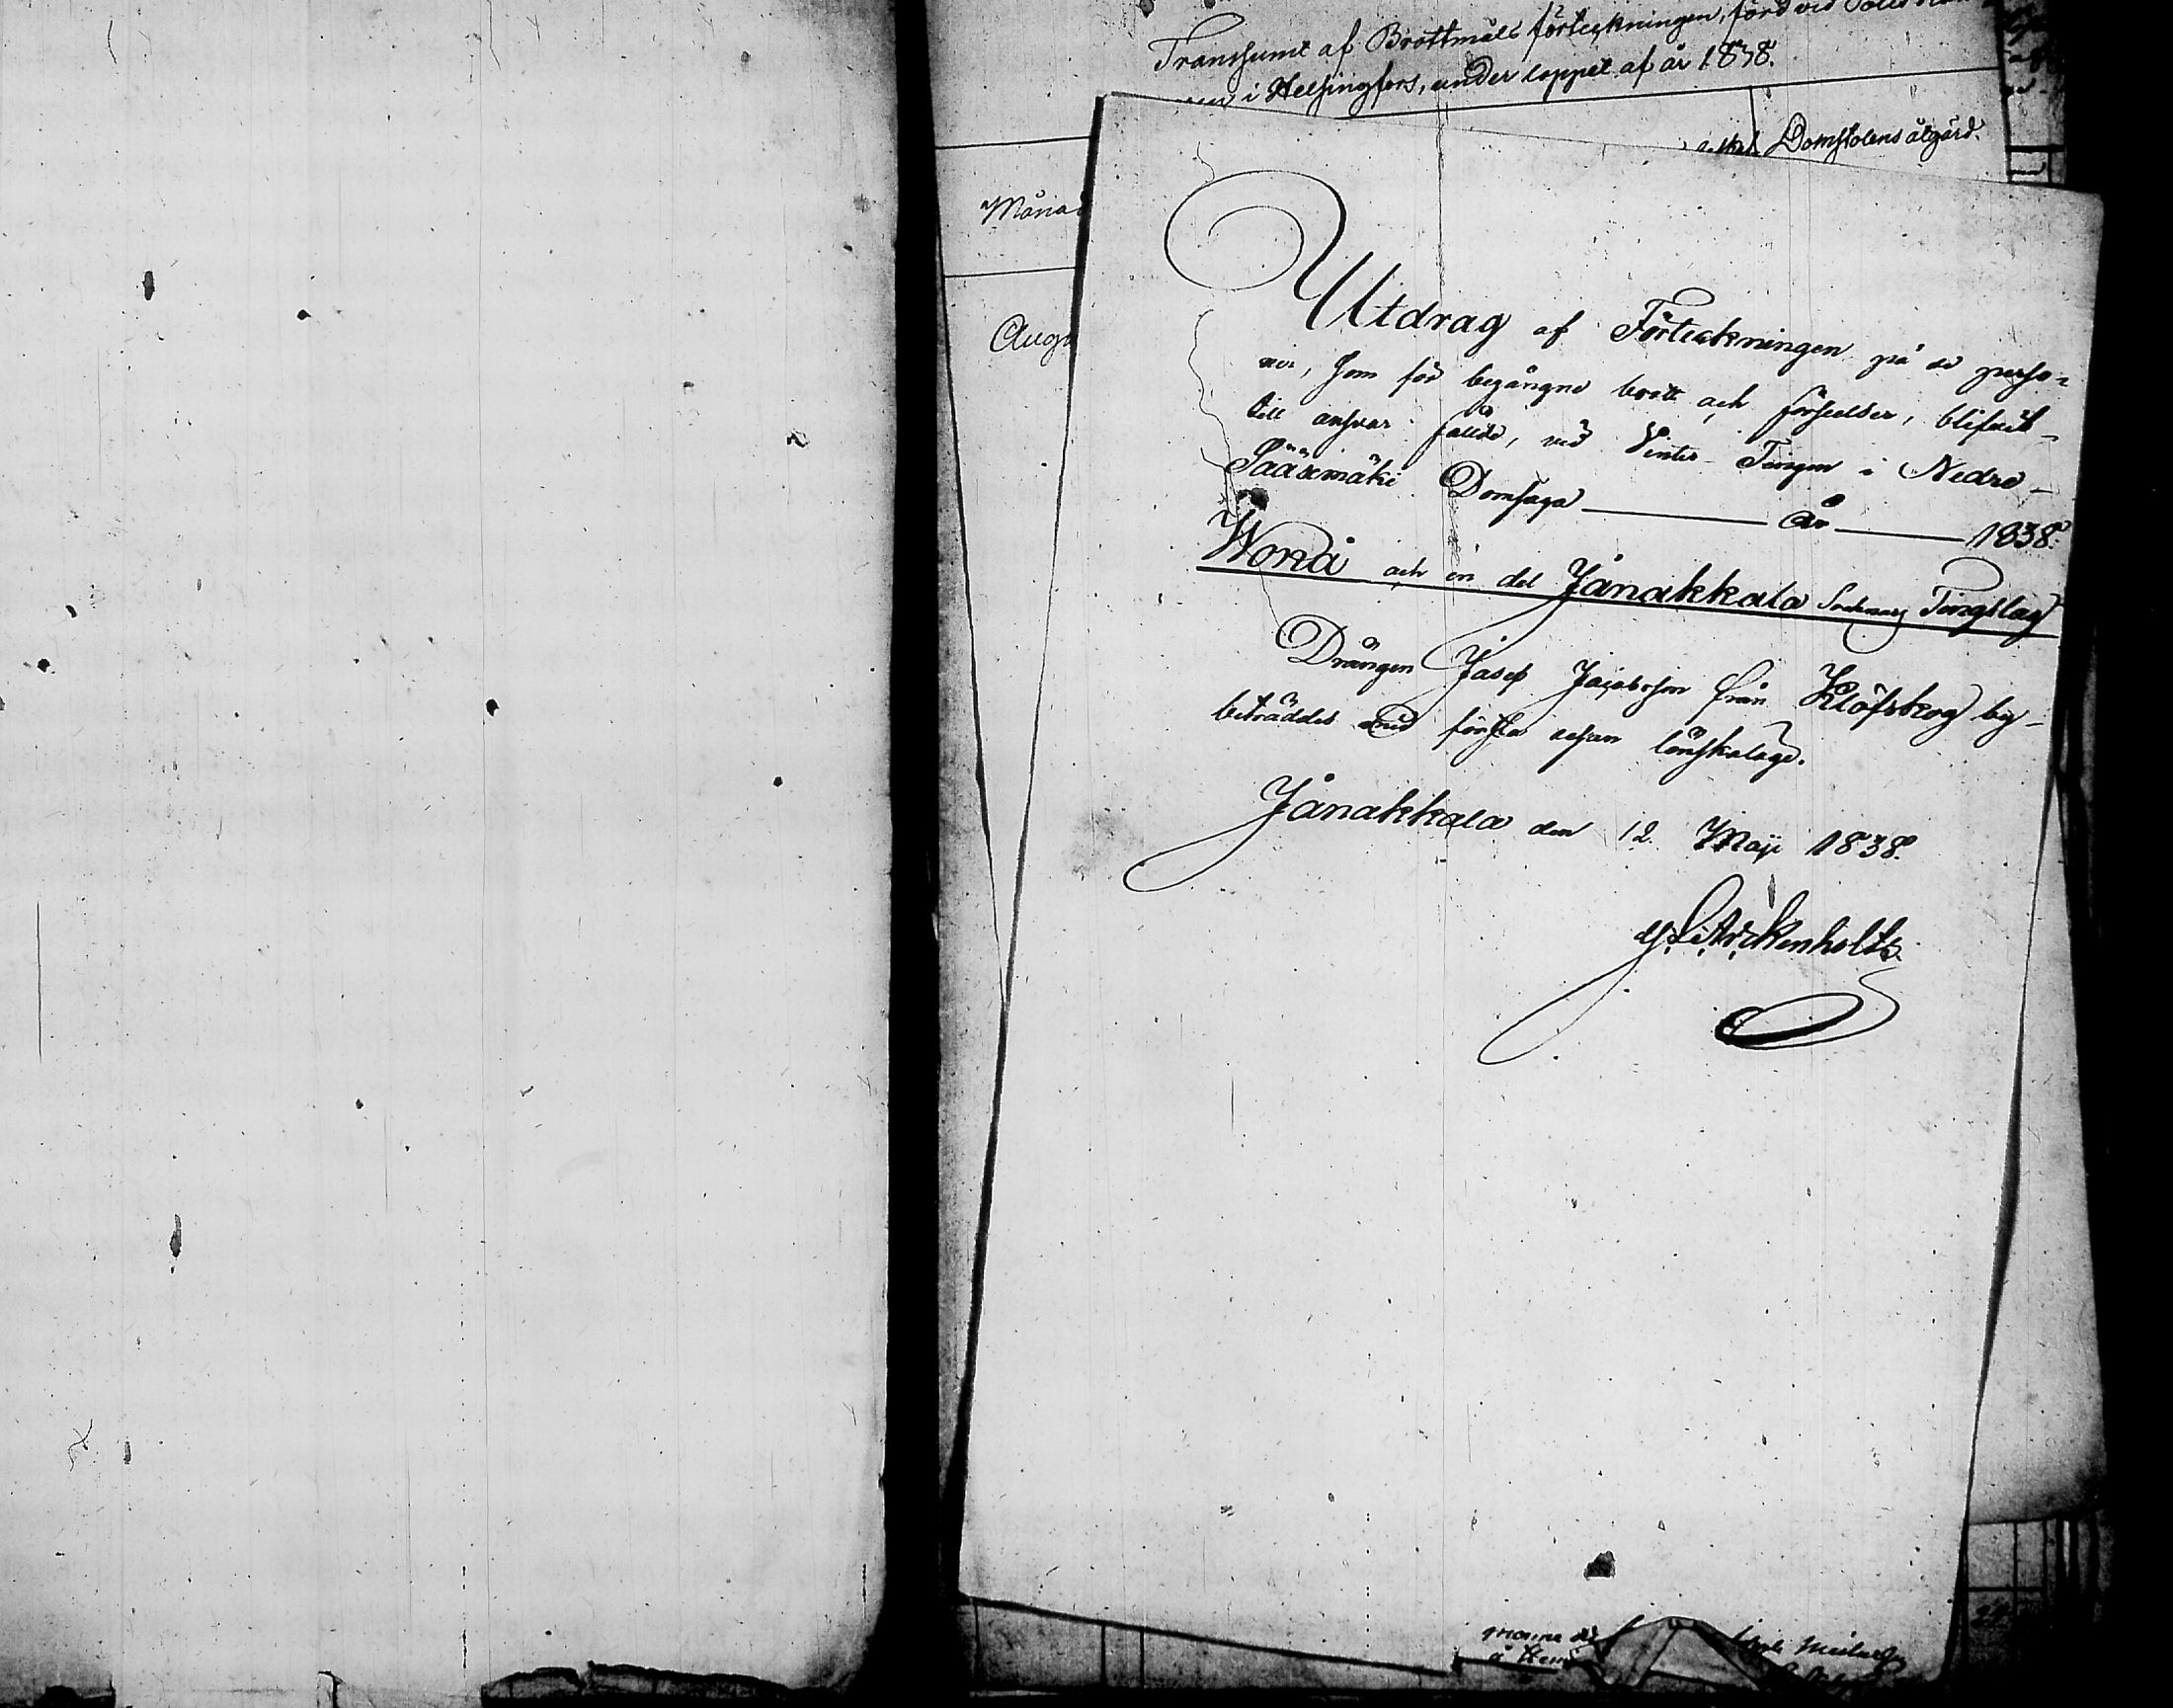 Transsumt af Brottmåls förteckningen, förd vid
i Helsingfors, under loppet af år 1838.
Domstolens åtgärd.
Måna
Augu
Utdrag af Förteckningen på de perso-
ner, som för begångne brott och förseelser, blifvit
till ansvar fällde, vid Vinter Tingen i Nedre
Sääxmäki Domsaga År 1838.
Wånå och en del Janakkala Socknars Tingslag
Drängen Josef Jacobsson från Klöfskog by
beträddes med första resan lönskaläge.
Janakkala den 12 Maji 1838.
Arckenholtz